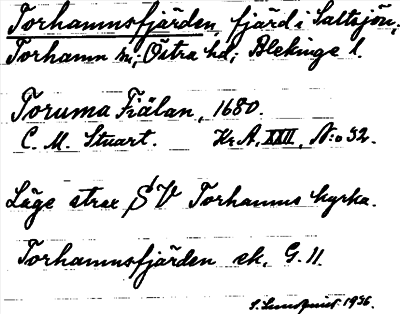 Torhamnsfjärden, fjärd i Saltsjön,
Torhamn sn; Östra hd; Blekinge l.
Toruma Fiälan, 1680.
C. M. Stuart. Kr. A. XXII, N:o 32.
Läge strax SV Torhamns kyrka.
Torhamnsfjärden ek. G. 11.
S. Lundquist 1936.